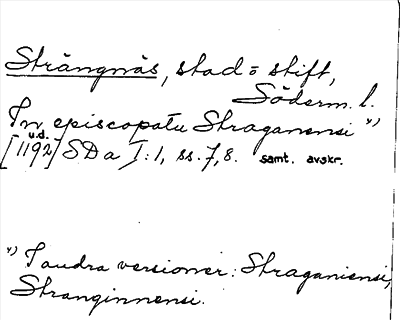 Strängnäs, stad o stift,
Söderm. l.
In episcopatu Straganensi x)
u.d.
[1192] SDa I:1, ss. 7, 8. samt. avskr.
x) I andra versioner: Straganiensi,
Stranginnensi.